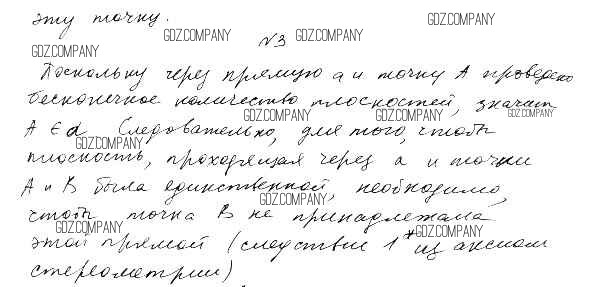 эту точку.
GDZ.COMPANY
GDZ.COMPANY №3 GDZ.COMPANY
GDZ.COMPANY
Поскольку через прямую a и точку A проведено
бесконечное количество плоскостей, значит
GDZ.COMPANY GDZ.COMPANY GDZ.COMPANY
A ∈ d Следовательно, для того, чтобы
GDZ.COMPANY
плоскость, проходящая через a и точки
A и B была единственной, необходимо,
GDZ.COMPANY
чтобы точка B не принадлежала
GDZ.COMPANY GDZ.COMPANY
этой прямой (следствие 1* из аксиом
стереометрии)